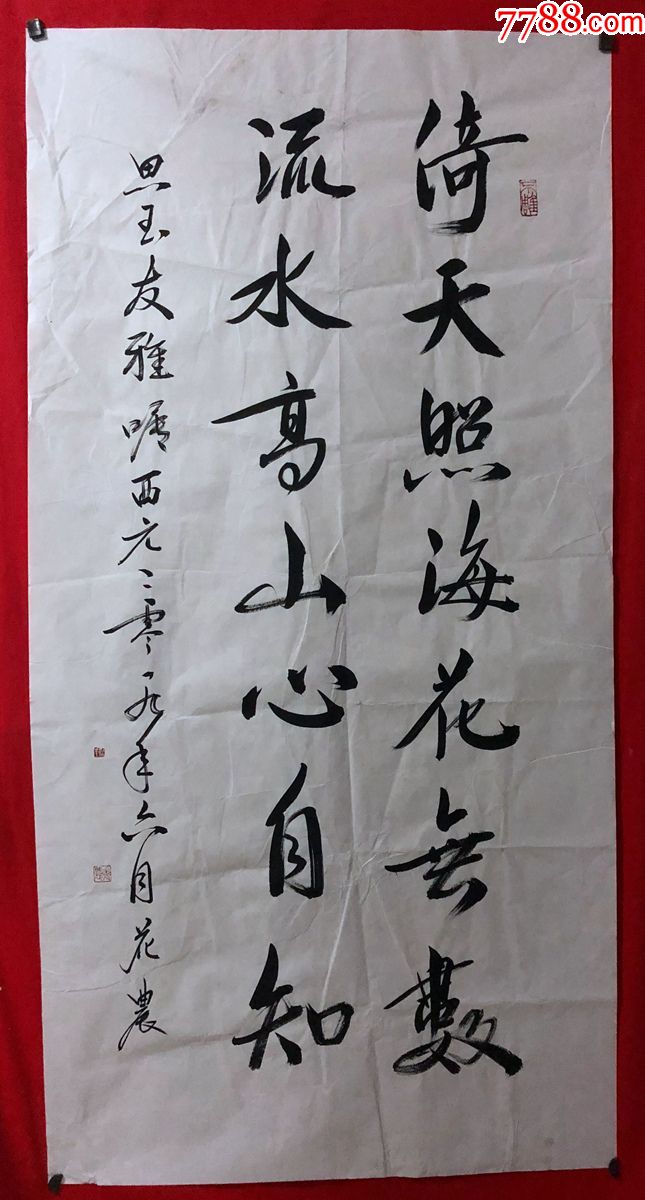 7788.com
倚天照海花無數
流水高山心自知
思玉友雅嘱西元二零一九年六月花農